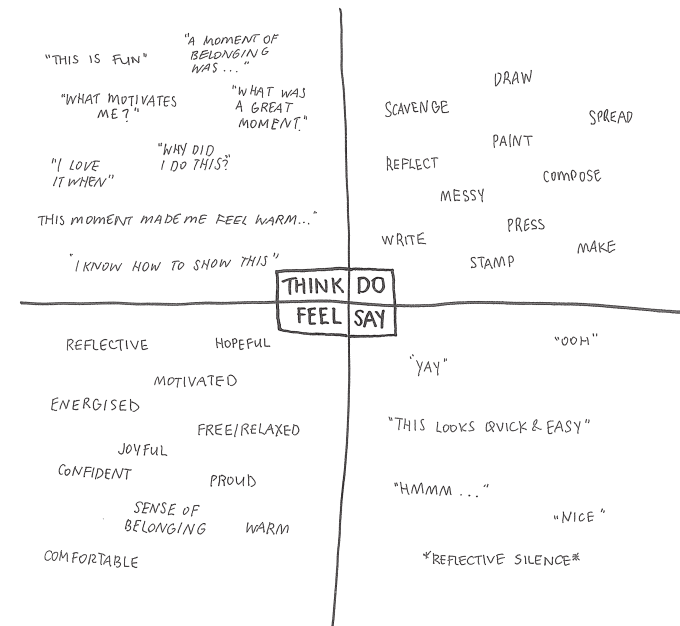 "THIS IS FUN"
"A MOMENT OF
BELONGING
WAS..."
"WHAT MOTIVATES
ME?"
"WHAT WAS
A GREAT
MOMENT."
"I LOVE
IT WHEN"
"WHY DID
I DO THIS?"
THIS MOMENT MADE ME FEEL WARM..."
"I KNOW HOW TO SHOW THIS"
DRAW
SCAVENGE
SPREAD
PAINT
REFLECT
COMPOSE
MESSY
PRESS
WRITE
MAKE
STAMP
THINK
DO
FEEL
SAY
REFLECTIVE
HOPEFUL
MOTIVATED
ENERGISED
FREE/RELAXED
JOYFUL
CONFIDENT
PROUD
SENSE OF
BELONGING
WARM
COMFORTABLE
"OOH"
"YAY"
"THIS LOOKS QUICK & EASY"
"HMMM ..."
"NICE"
*REFLECTIVE SILENCE*